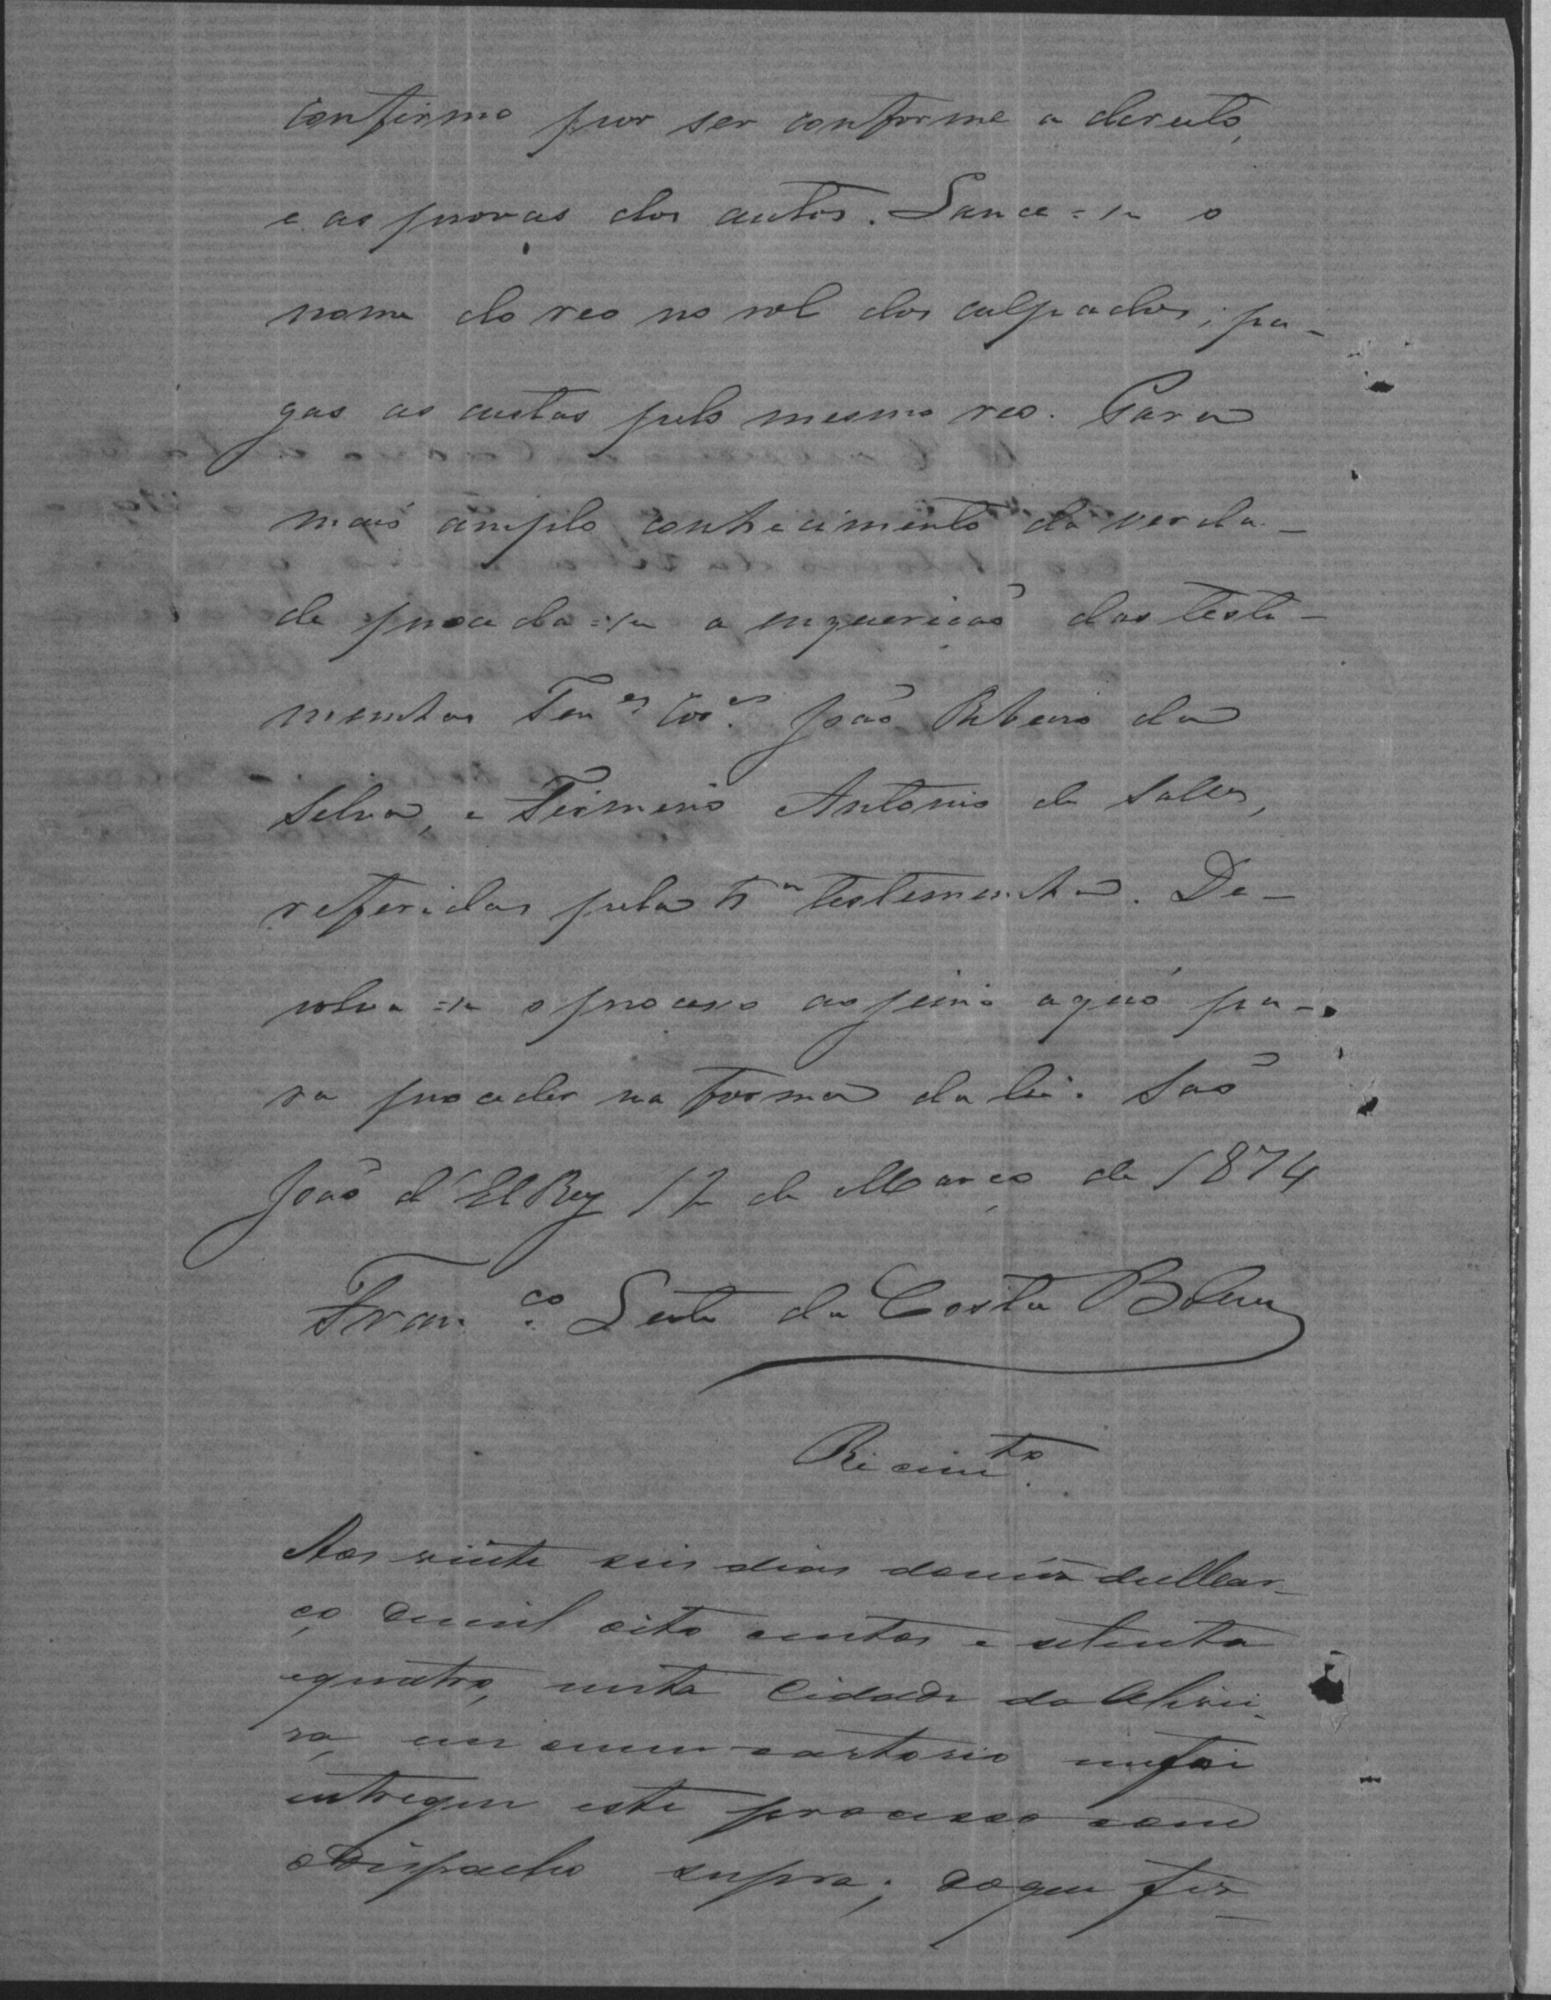 confirmo por ser conforme a direito,
e as provas dos autos. Lance-se o
nome do reo no rol dos culpados; pa-
gas as custas pelo mesmo reo. Para
mais amplo conhecimento da verda-
de proceda-se a inquerição das teste-
munhas Ten.es Cor.es João Ribeiro da
Silva, e Firmino Antonio de Salles,
referidas pela testemunha. De-
volva-se o processo ao juiso a quó pa-
ra proceder na forma da lei. São
João d'El Rey 12 de Março de 1874
Fran.co Leite da Costa Belem
Recim.to
Aos vinte seis dias do mes de Mar-
ço de mil oito centos e setenta
e quatro, nesta Cidade da Olivei-
ra, em o meu cartorio me foi
entregue este processo com
o Dispacho supra; do que fiz